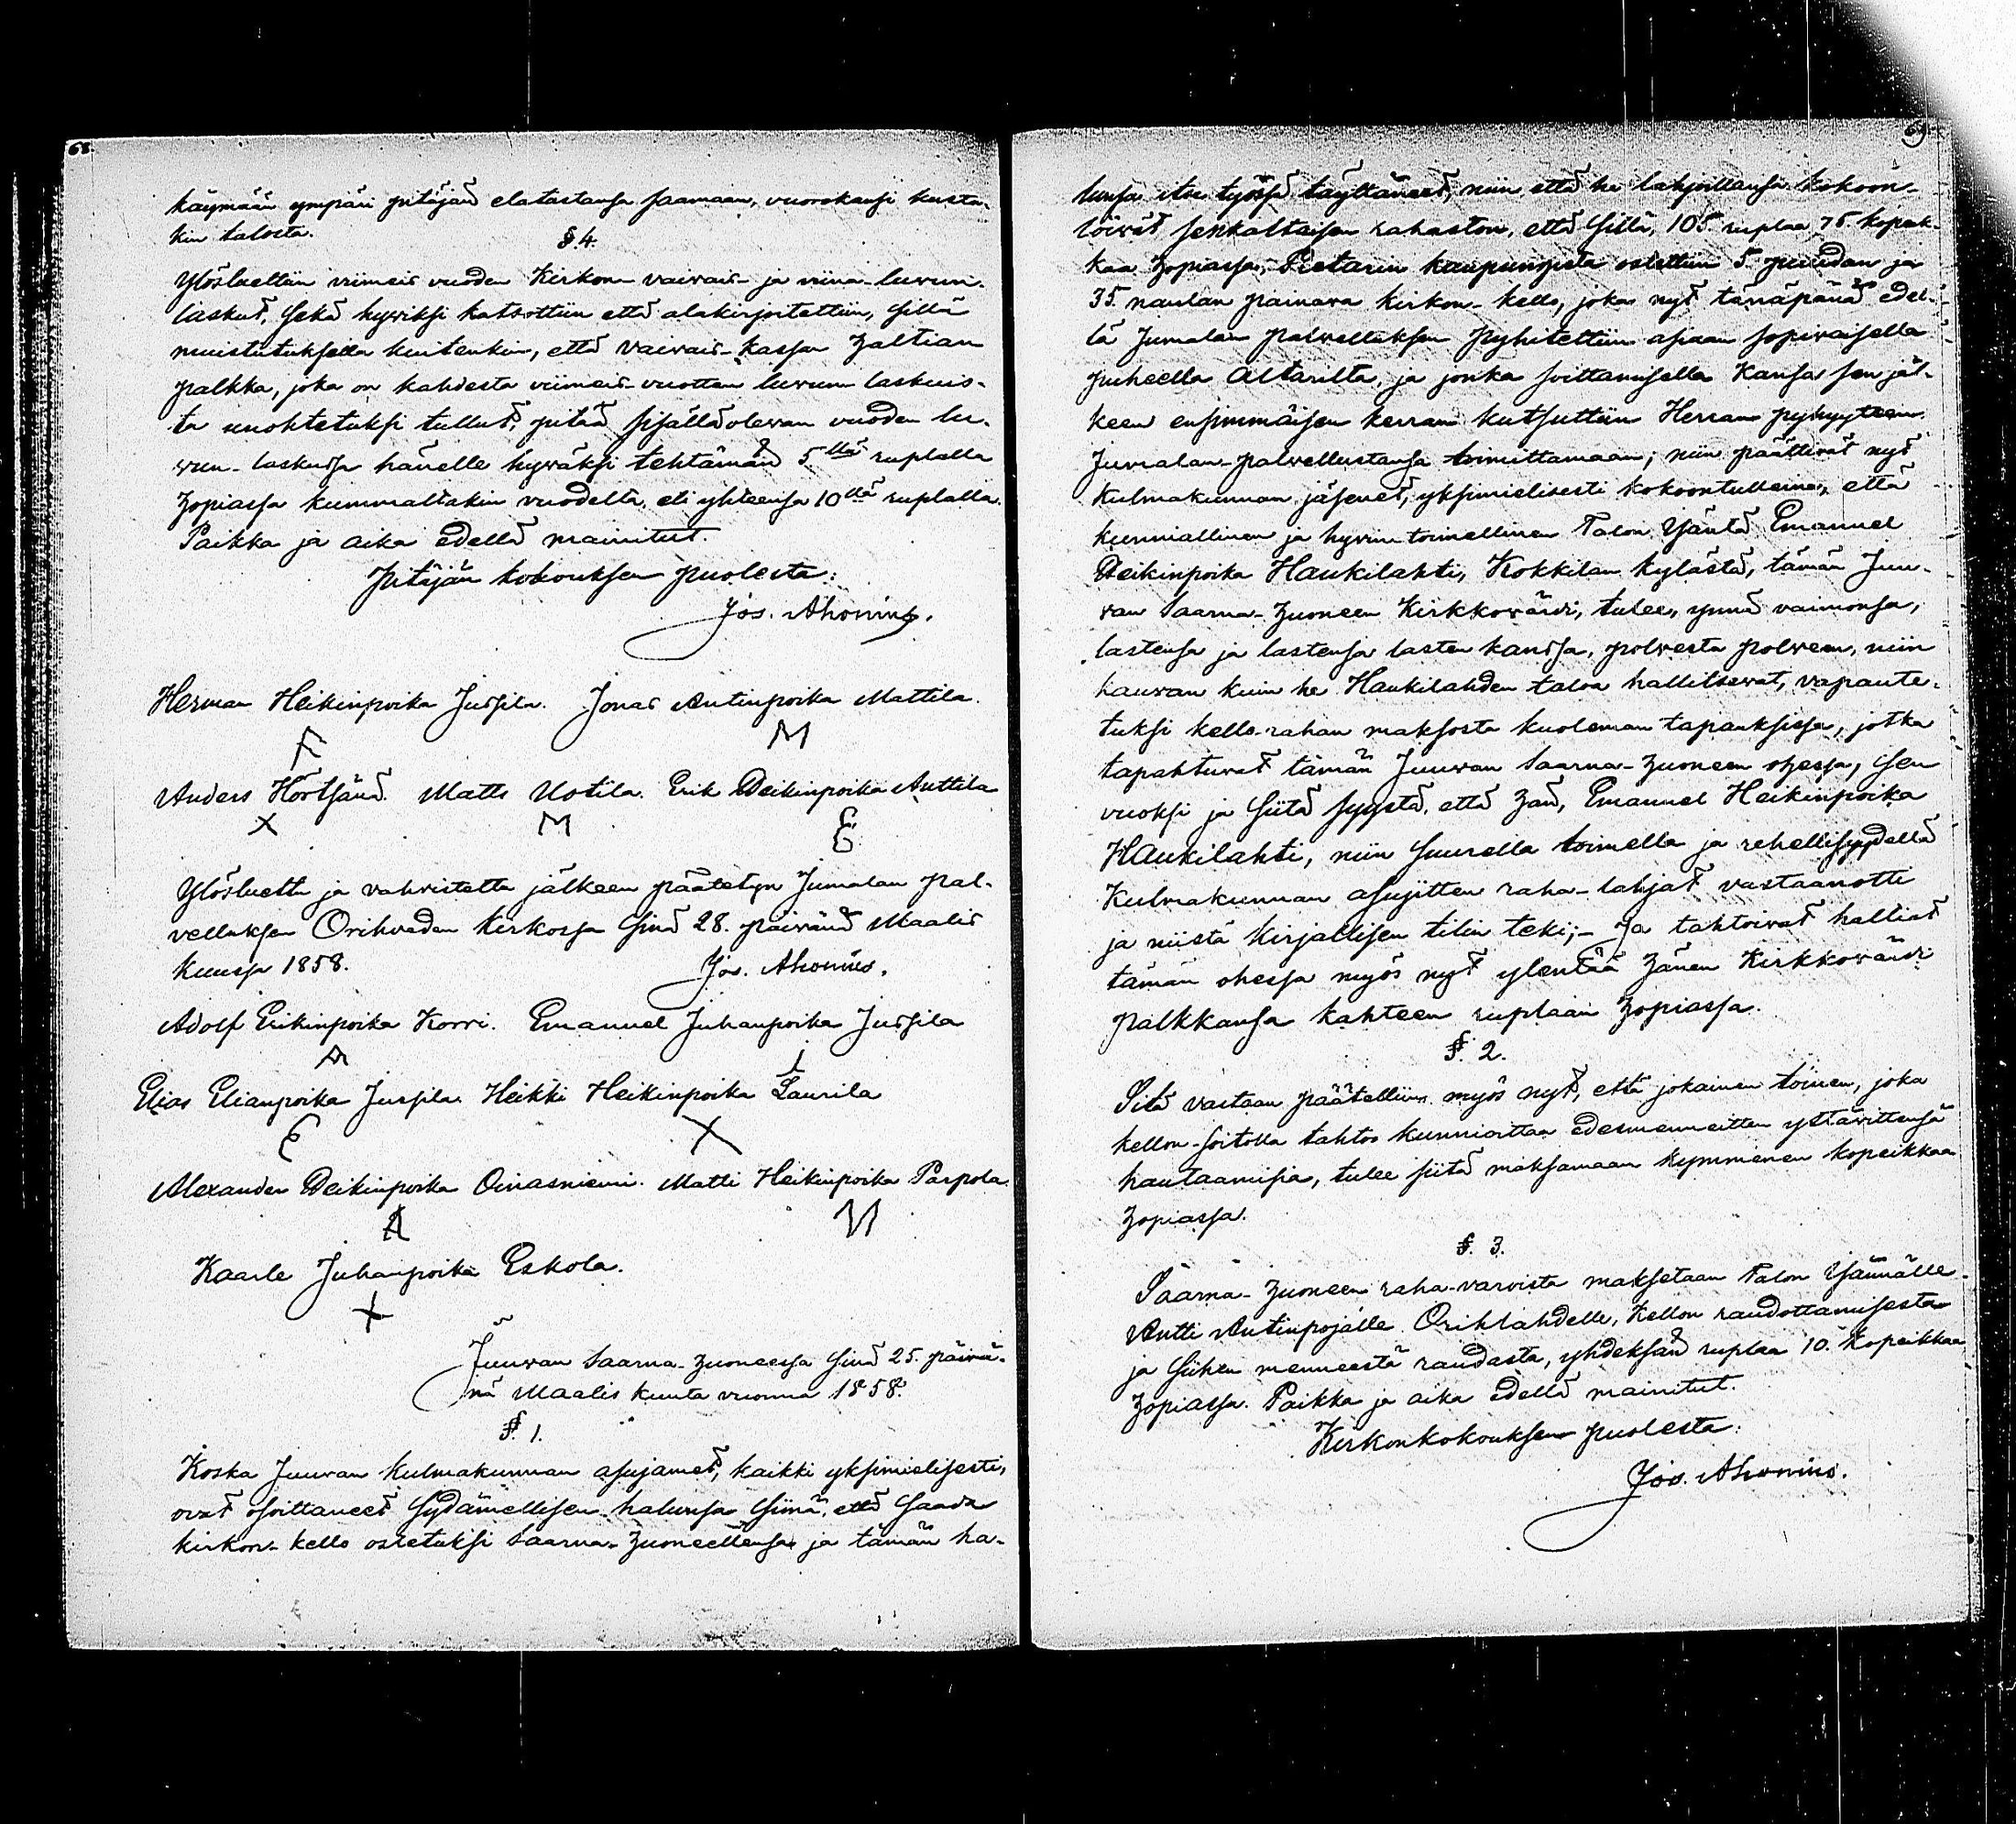 68.
käymään ympäri pitäjäd elatastansa saamaan, vuorokausi kusta-
kin talosta.
§. 4.
Ylösluettiin viimeis vuoden Kirkon- vaivais- ja viina-luvun-
laskut, sekä hyviksi katsottiin että alakirjoitettiin, sillä
muistutuksella kuitenkin, että vaivais-kassan Haltian
palkka, joka on kahdesta viimeis-vuotten luvun laskuis-
ta unohtetuksi tullut, pitää sisälläolevan vuoden lu-
vun-laskussa hänelle hyväksi tehtämän 5llä ruplalla
Hopiassa kummaltakin vuodelta, eli yhteensä 10llä ruplalla.
Paikka ja aika edellä mainitut.
Pitäjän kokouksen puolesta:
Jos. Ahonius.
Herman Heikinpoika Jussila. Jonas Antinpoika Mattila.
M
Anders Hörtsänä. Matts Uotila. Erik Deikinpoika Anttila
X M E
Ylösluettu ja vahvistettu jälkeen päätetyn Jumalan pal-
velluksen Orihveden kirkossa sinä 28. päivänä Maalis
kuussa 1858. Jos. Ahonius.
Adolf Erikinpoika Korri. Emanuel Juhanpoika Jussila
A
Elias Elianpoika Jussila. Heikki Heikinpoika Laurila
E X
Alexander Deikinpoika Oinasniemi. Matti Heikinpoika Parpola.
A M
Kaarle Juhanpoika Eskola.
X
Juuvan Saarna-Huoneessa sinä 25. päivä-
nä Maalis kuuta vuonna 1858.
§. 1.
Koska Juuvan kulmakunnan asujamet, kaikki yksimielisesti,
ovat osoittaneet sydämellisen halunsa siinä, että saada
kirkon-kello ostetuksi Saarna-Huoneellensa ja tämän ha-
69
lunsa itse työssä täyttäneet, niin että he lahjoillansa kokoon-
löivät senkaltaisen rahaston, että sillä, 105 ruplaa 75 kopeik-
kaa Hopiassa, Pietarin kaupungista ostettiin 5 puudan ja
35. naulan painava kirkon-kello, joka nyt tänäpänä edel-
lä Jumalan palvelluksen pyhitettiin asiaan sopivaisella
puheella Altarilta, ja jonka soittamisella Kansa sen jäl-
keen ensimmäisen kerran kutsuttiin Herran pyhyyteen
Jumalan-palvellustansa toimittamaan; niin päättivät nyt
kulmakunnan jäsenet, yksimielisesti kokoontulleina, että
kunniallinen ja hyvin toimellinen Talon Isäntä Emanuel
Deikinpoika Haukilahti, Kokkilan kylästä, tämän Juu-
van Saarna-Huoneen Kirkkowärdi, tulee, ynnä vaimonsa,
lastensa ja lastensa lasten kanssa, polvesta polveen, niin
kauvan kuin he Haukilahden taloa hallitsevat, vapaute-
tuksi kello-rahan maksosta kuoleman tapauksissa, jotka
tapahtuvat tämän Juuvan Saarna-Huoneen ohessa, sen
vuoksi ja siitä syystä, että hän, Emanuel Heikinpoika
Haukilahti, niin suurella toimella ja rehellisyydellä
Kulmakunnan asujitten raha-lahjat vastaanotti
ja niistä kirjallisen tilin teki;- Ja tahtoivat halliat
tämän ohessa myös nyt ylentää Hänen Kirkkowärdi
palkkansa kahteen ruplaan Hopiassa.
§. 2.
Sitä vastaan päätettiin myös nyt, että jokainen toinen, joka
kellon-soitolla tahtoo kunnioittaa edesmenneitten ystävittensä
hautaamisia, tulee siitä maksamaan kymmenen kopeikkaa
Hopiassa.
§. 3.
Saarna-Huoneen raha-varoista maksetaan Talon Isännälle
Antti Antinpojalle Orihlahdelle, Kellon raudottamisesta
ja siihen menneestä raudasta, yhdeksän ruplaa 10. Kopeikkaa
Hopiassa. Paikka ja aika edellä mainitut.
Kirkonkokouksen puolesta:
Jos. Ahonius.